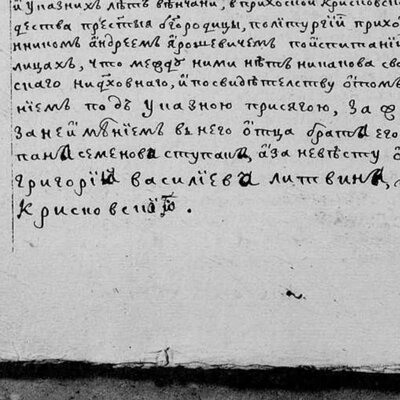 и указнихъ лѣтъ вѣнчани, в приходской крисковской
дества пресвтыя бгородицы, по литургіи прихо
ннкомъ андреемъ ярошевичемъ по испитаніи
лицахъ, что между ними нѣтъ никакова сво
скаго ни духовнаго, и по свидѣтелству о томъ
ніемъ подъ указною присягою, за
за неимѣніемъ в него отца братъ его
пана семенова ступака, а за невѣсту о
григорій василіевъ литвинъ,
крисковскій.